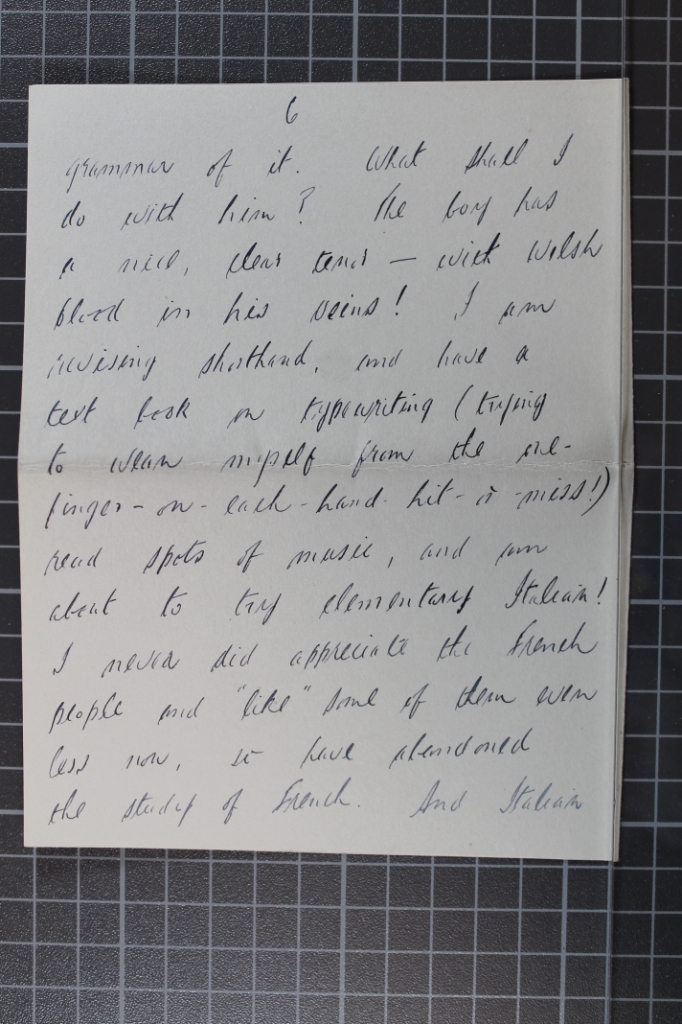 6
grammar of it. What shall I
do with him? The boy has
a nice, clear tenor — with Welsh
blood in his veins! I am
revising shorthand, and have a
text book on typewriting (trying
to wean myself from the one-
finger-on-each-hand-hit-or-miss!)
read spots of music, and am
about to try elementary Italian!
I never did appreciate the French
people and "like" some of them even
less now, so have abandoned
the study of French. And Italian